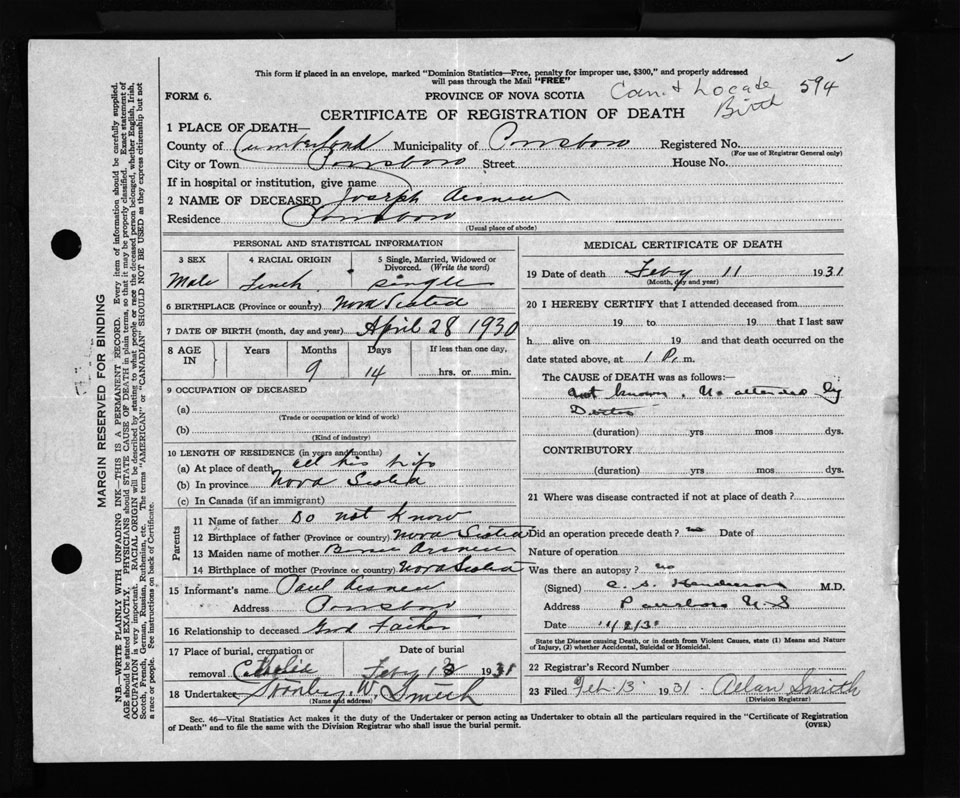 This form if placed in an envelope, marked "Dominion Statistics—Free, penalty for improper use, $300," and properly addressed
will pass through the Mail "FREE"
FORM 6.
PROVINCE OF NOVA SCOTIA
Can't Locate
Birth
594
CERTIFICATE OF REGISTRATION OF DEATH
1 PLACE OF DEATH—
County of Cumberland Municipality of Parrsboro Registered No.
(For use of Registrar General only)
City or Town Parrsboro Street House No.
If in hospital or institution, give name
2 NAME OF DECEASED Joseph
Residence Parrsboro
(Usual place of abode)
PERSONAL AND STATISTICAL INFORMATION
3 SEX
Male
4 RACIAL ORIGIN
French
5 Single, Married, Widowed or
Divorced. (Write the word)
Single
6 BIRTHPLACE (Province or country) Nova Scotia
7 DATE OF BIRTH (month, day and year) April 28 1930
8 AGE IN Years Months Days If less than one day,
9 14 hrs. or min.
9 OCCUPATION OF DECEASED
(a)
(Trade or occupation or kind of work)
(b)
(Kind of industry)
10 LENGTH OF RESIDENCE (in years and months)
(a) At place of death all his life
(b) In province Nova Scotia
(c) In Canada (if an immigrant)
Parents
11 Name of father Do not know
12 Birthplace of father (Province or country) Nova Scotia
13 Maiden name of mother
14 Birthplace of mother (Province or country) Nova Scotia
15 Informant's name Paul
Address Parrsboro
16 Relationship to deceased Grand Father
17 Place of burial, cremation or
removal Catholic
Date of burial
Feby 13 1931
18 Undertaker Stanley W. Smith
(Name and address)
MEDICAL CERTIFICATE OF DEATH
19 Date of death Feby 11 1931
(Month, day and year)
20 I HEREBY CERTIFY that I attended deceased from
19 to 19 that I last saw
h alive on 19 and that death occurred on the
date stated above, at 1 P. m.
The CAUSE of DEATH was as follows:—
Not known. No attended by
Doctor
(duration) yrs mos dys.
CONTRIBUTORY
(duration) yrs mos dys.
21 Where was disease contracted if not at place of death?
Did an operation precede death? no Date of
Nature of operation
Was there an autopsy? no
(Signed) C. S. Henderson M.D.
Address Parrsboro N.S
Date
State the Disease causing Death, or in death from Violent Causes, state (1) Means and Nature
of Injury, (2) whether Accidental, Suicidal or Homicidal.
22 Registrar's Record Number
23 Filed Feb. 13 1931 Allan Smith
(Division Registrar)
Sec. 46—Vital Statistics Act makes it the duty of the Undertaker or person acting as Undertaker to obtain all the particulars required in the "Certificate of Registration
of Death" and to file the same with the Division Registrar who shall issue the burial permit.
(OVER)
MARGIN RESERVED FOR BINDING
N.B.—WRITE PLAINLY WITH UNFADING INK—THIS IS A PERMANENT RECORD. Every item of information should be carefully supplied.
AGE should be stated EXACTLY. PHYSICIANS should STATE CAUSE OF DEATH in plain terms, so that it may be properly classified. Exact statement of
OCCUPATION is very important. RACIAL ORIGIN will be described by stating to what people or race the deceased person belonged, whether English, Irish,
Scotch, French, German, Russian, Ruthenian, etc. The terms "AMERICAN" or "CANADIAN" SHOULD NOT BE USED as they express citizenship but not
a race or people. See instructions on back of Certificate.